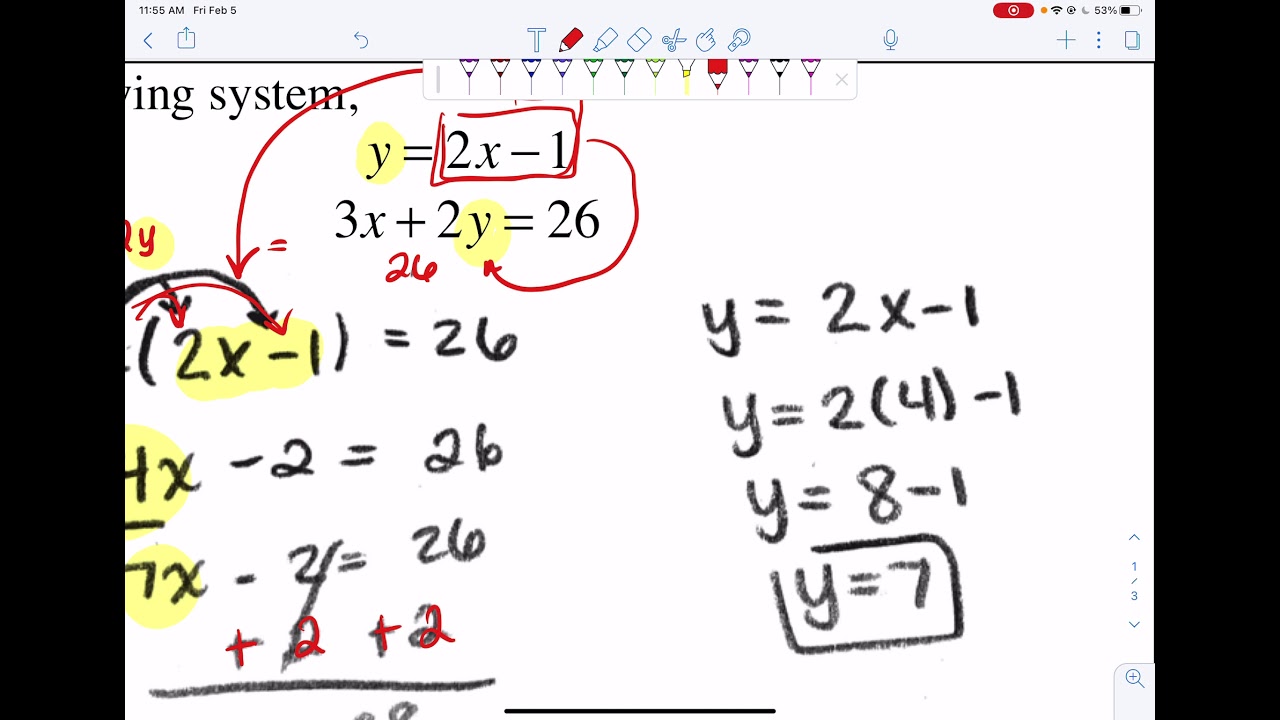 11:55 AM Fri Feb 5
53%
ving system,
y = 2x − 1
3x + 2y = 26
2y = 26
(2x − 1) = 26
4x − 2 = 26
7x − 2 = 26
+ 2 + 2
28
y = 2x − 1
y = 2(4) − 1
y = 8 − 1
y = 7
1
/
3